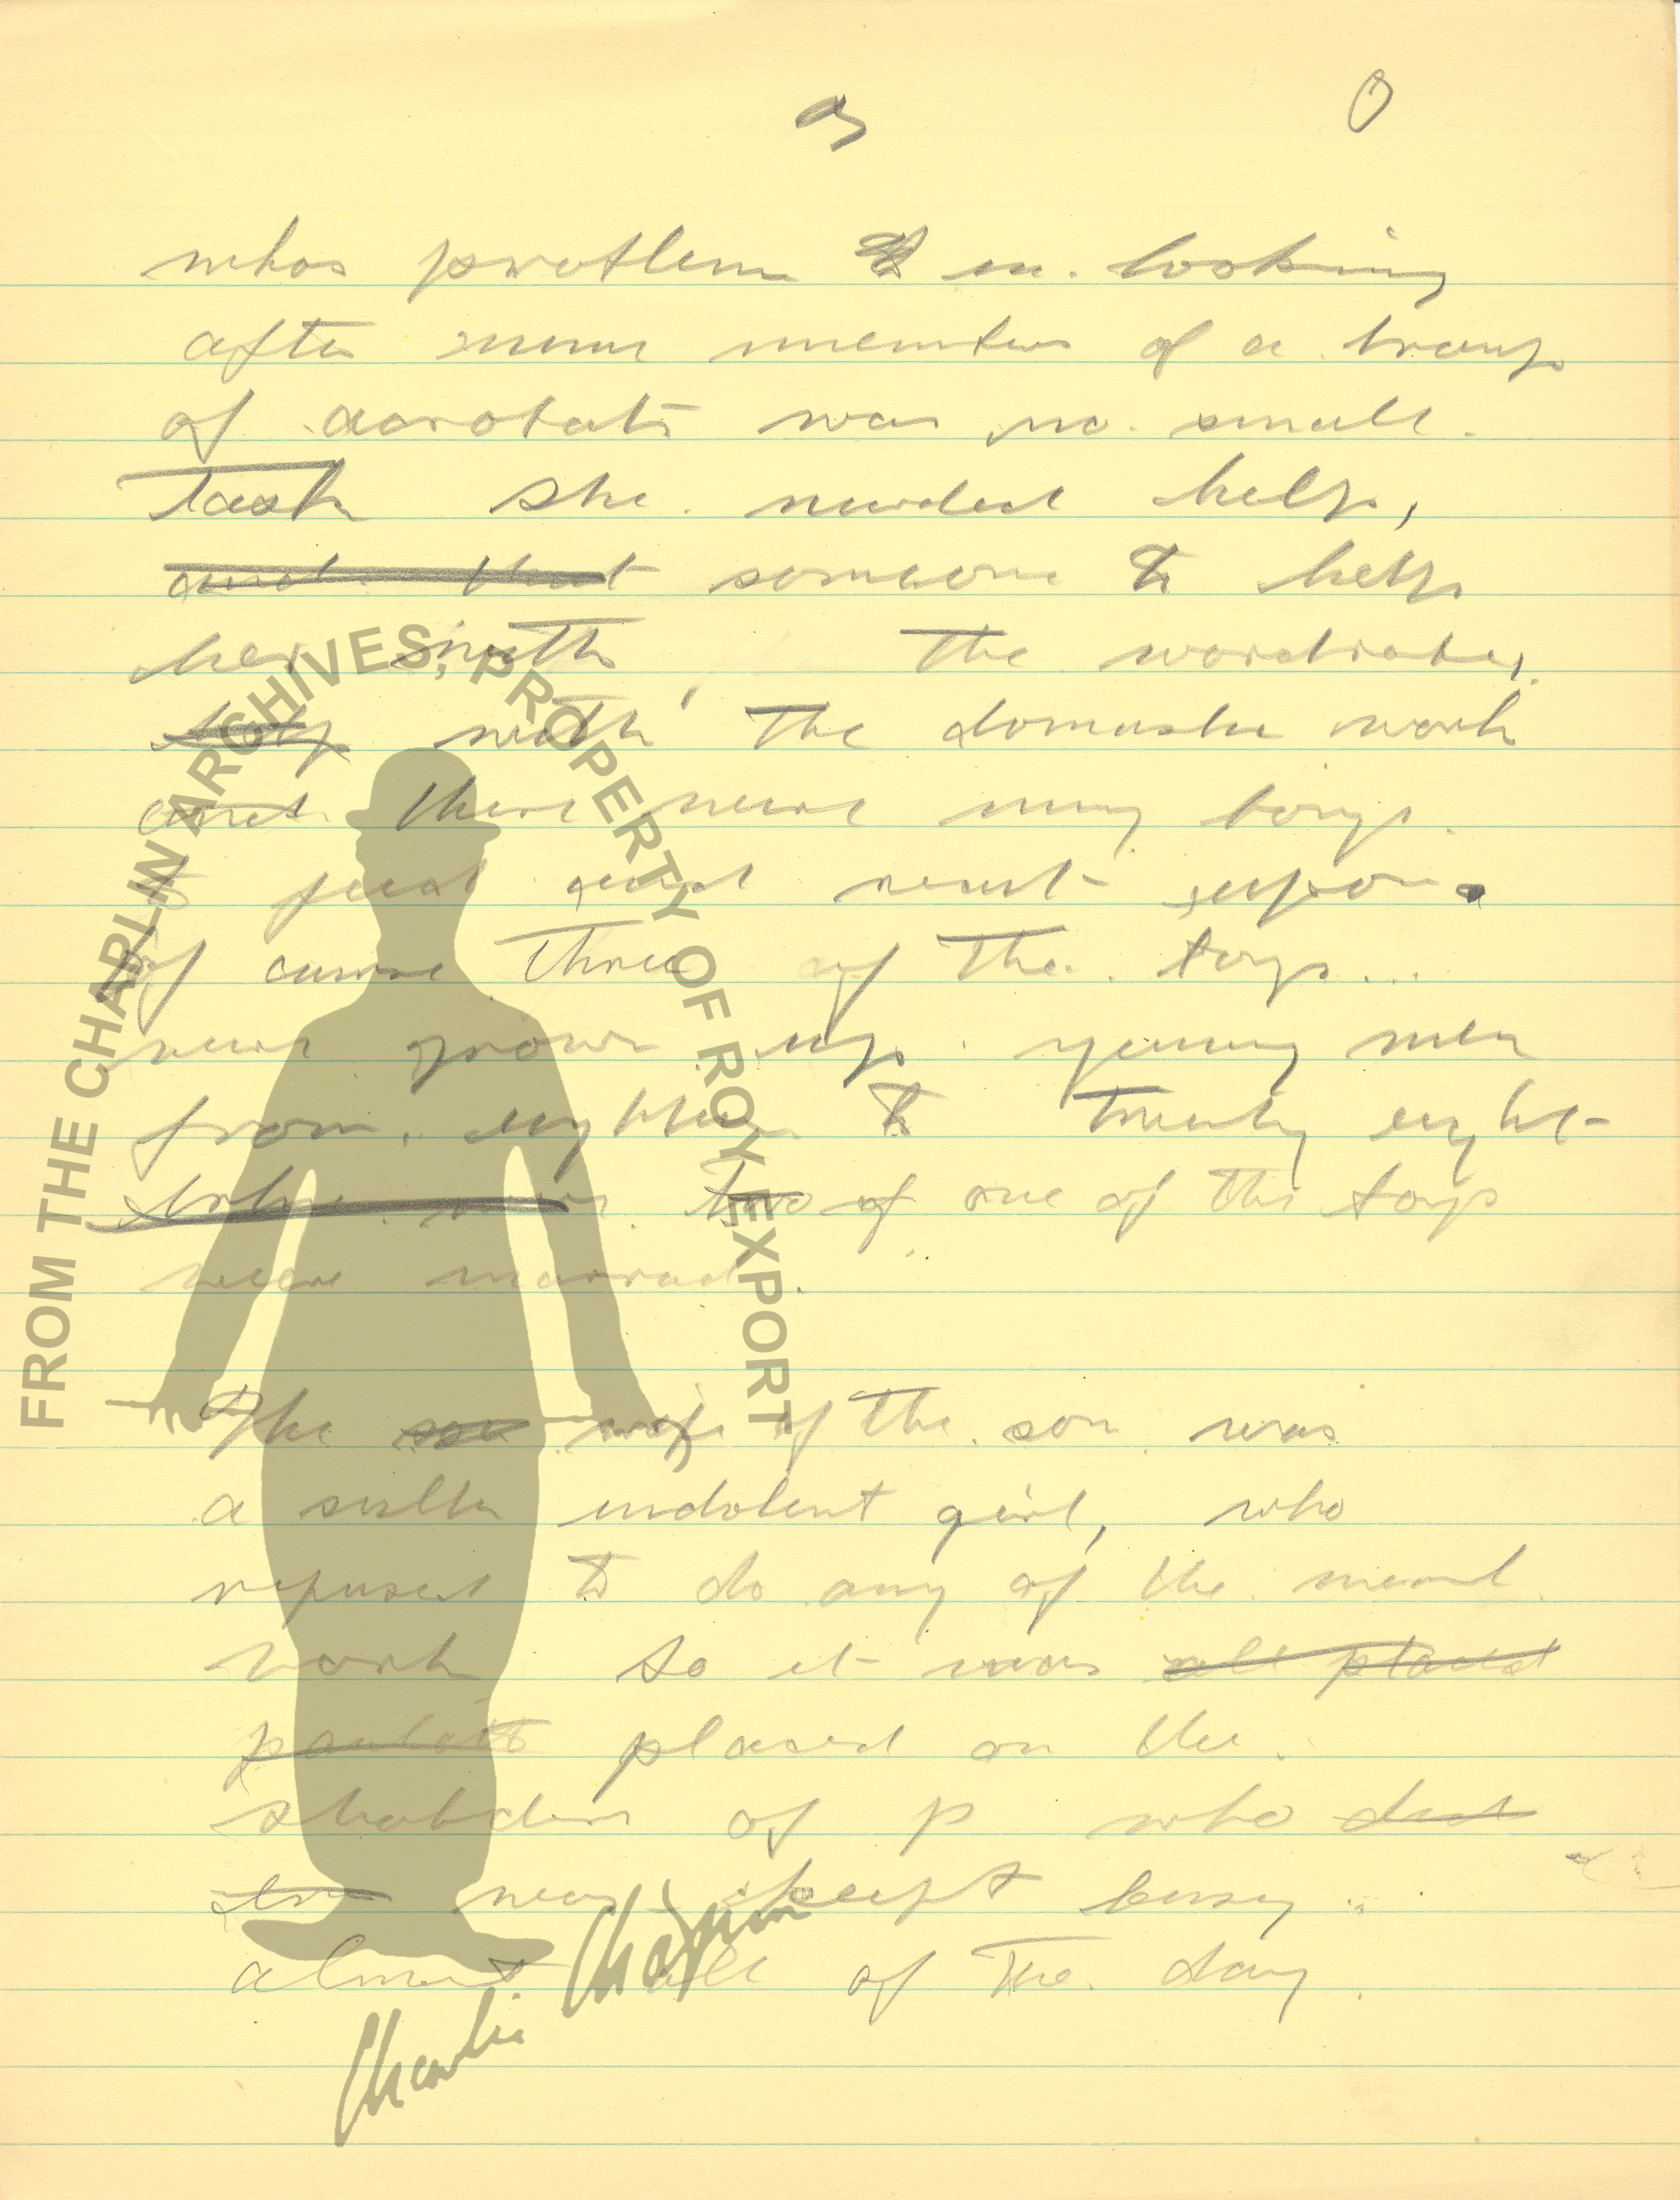 whos problem in looking
after nine members of a troup
of acrobats was no small
Task She needed help,
and that someone to help
her with the wardrobe,
with the domestic work
and there were nine boys
to feed and wait upon.
Of course three of the boys...
were grown up young men
from eighteen to twenty eight
two of one of the boys
were married.
The son wife of the son was
a sullen indolent girl, who
refused to do any of the menial
work So it was all placed
placed on the
shoulders of P who did
was kept busy
almost all of the day.
FROM THE CHAPLIN ARCHIVES, PROPERTY OF ROY EXPORT
Charlie Chaplin